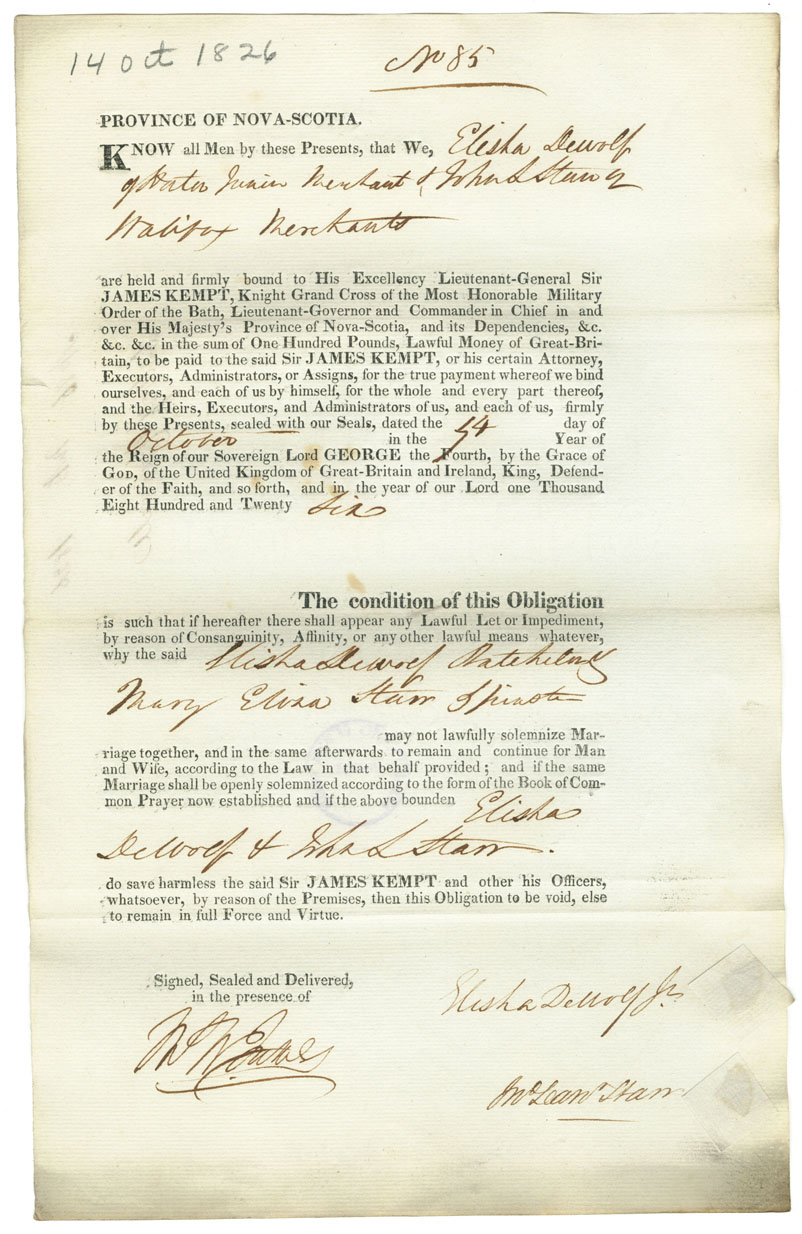 14 Oct 1826
No 85
PROVINCE OF NOVA-SCOTIA.
KNOW all Men by these Presents, that We, Elisha Dewolf
of Horton Junior Merchant & John L Starr of
Halifax Merchants
are held and firmly bound to His Excellency Lieutenant-General Sir
JAMES KEMPT, Knight Grand Cross of the Most Honorable Military
Order of the Bath, Lieutenant-Governor and Commander in Chief in and
over His Majesty's Province of Nova-Scotia, and its Dependencies, &c.
&c. &c. in the sum of One Hundred Pounds, Lawful Money of Great-Bri-
tain, to be paid to the said Sir JAMES KEMPT, or his certain Attorney,
Executors, Administrators, or Assigns, for the true payment whereof we bind
ourselves, and each of us by himself, for the whole and every part thereof,
and the Heirs, Executors, and Administrators of us, and each of us, firmly
by these Presents, sealed with our Seals, dated the 14 day of
October in the 7 Year of
the Reign of our Sovereign Lord GEORGE the Fourth, by the Grace of
GOD, of the United Kingdom of Great-Britain and Ireland, King, Defend-
er of the Faith, and so forth, and in the year of our Lord one Thousand
Eight Hundred and Twenty Six
The condition of this Obligation
is such that if hereafter there shall appear any Lawful Let or Impediment,
by reason of Consanguinity, Affinity, or any other lawful means whatever,
why the said Elisha Dewolf Batchelor &
Mary Eliza Starr Spinster
may not lawfully solemnize Mar-
riage together, and in the same afterwards to remain and continue for Man
and Wife, according to the Law in that behalf provided; and if the same
Marriage shall be openly solemnized according to the form of the Book of Com-
mon Prayer now established and if the above bounden Elisha
DeWolf & John L Starr.
do save harmless the said Sir JAMES KEMPT and other his Officers,
whatsoever, by reason of the Premises, then this Obligation to be void, else
to remain in full Force and Virtue.
Signed, Sealed and Delivered,
in the presence of
Elisha DeWolf Jr
Jno Leand Starr